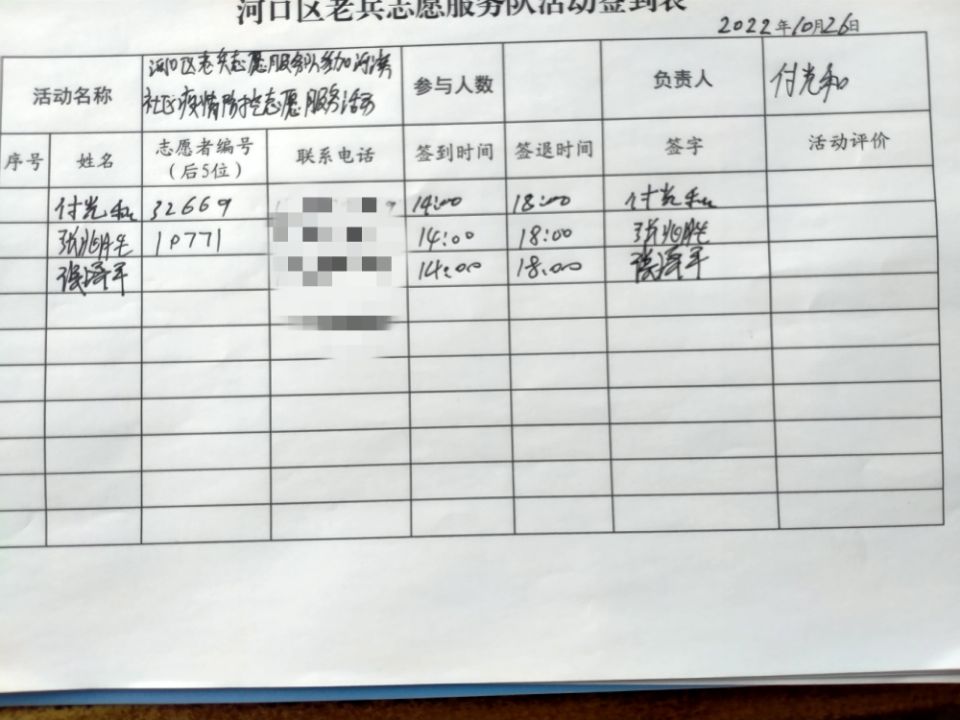 河口区老兵志愿服务队活动签到表
2022年10月26日
活动名称 河口区老兵志愿服务队参加河滨 参与人数 负责人 付光和
社区疫情防控志愿服务活动
序号 姓名 志愿者编号 联系电话 签到时间 签退时间 签字 活动评价
(后5位)
付光和 32669 14:00 18:00 付光和
张兆胜 10771 14:00 18:00 张兆胜
张泽军 14:00 18:00 张泽军